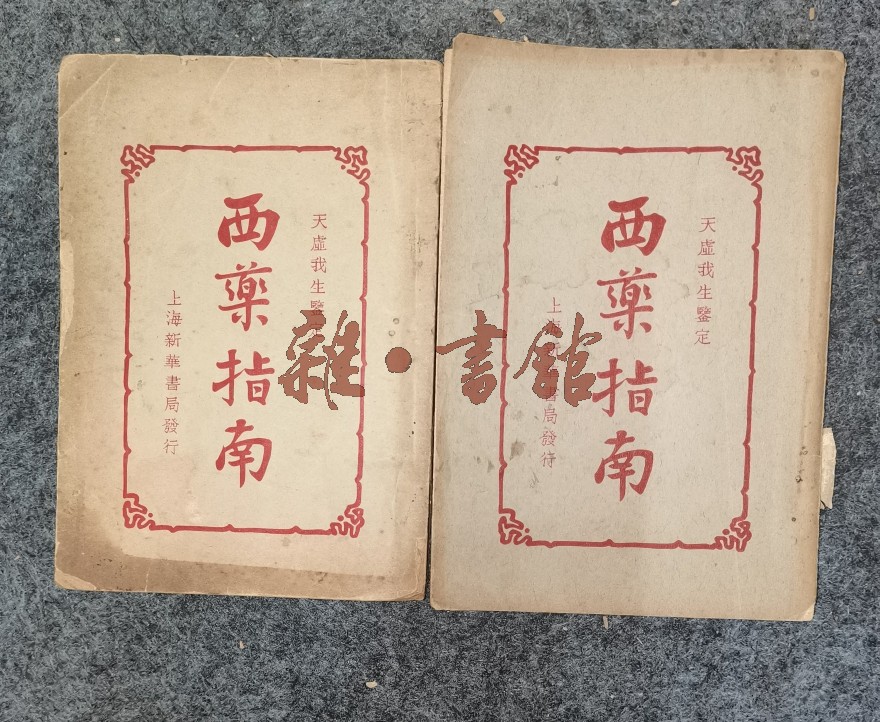 天虛我生鑒定
西藥指南
上海新華書局發行
天虛我生鑒定
西藥指南
上海新華書局發行
雜·書館